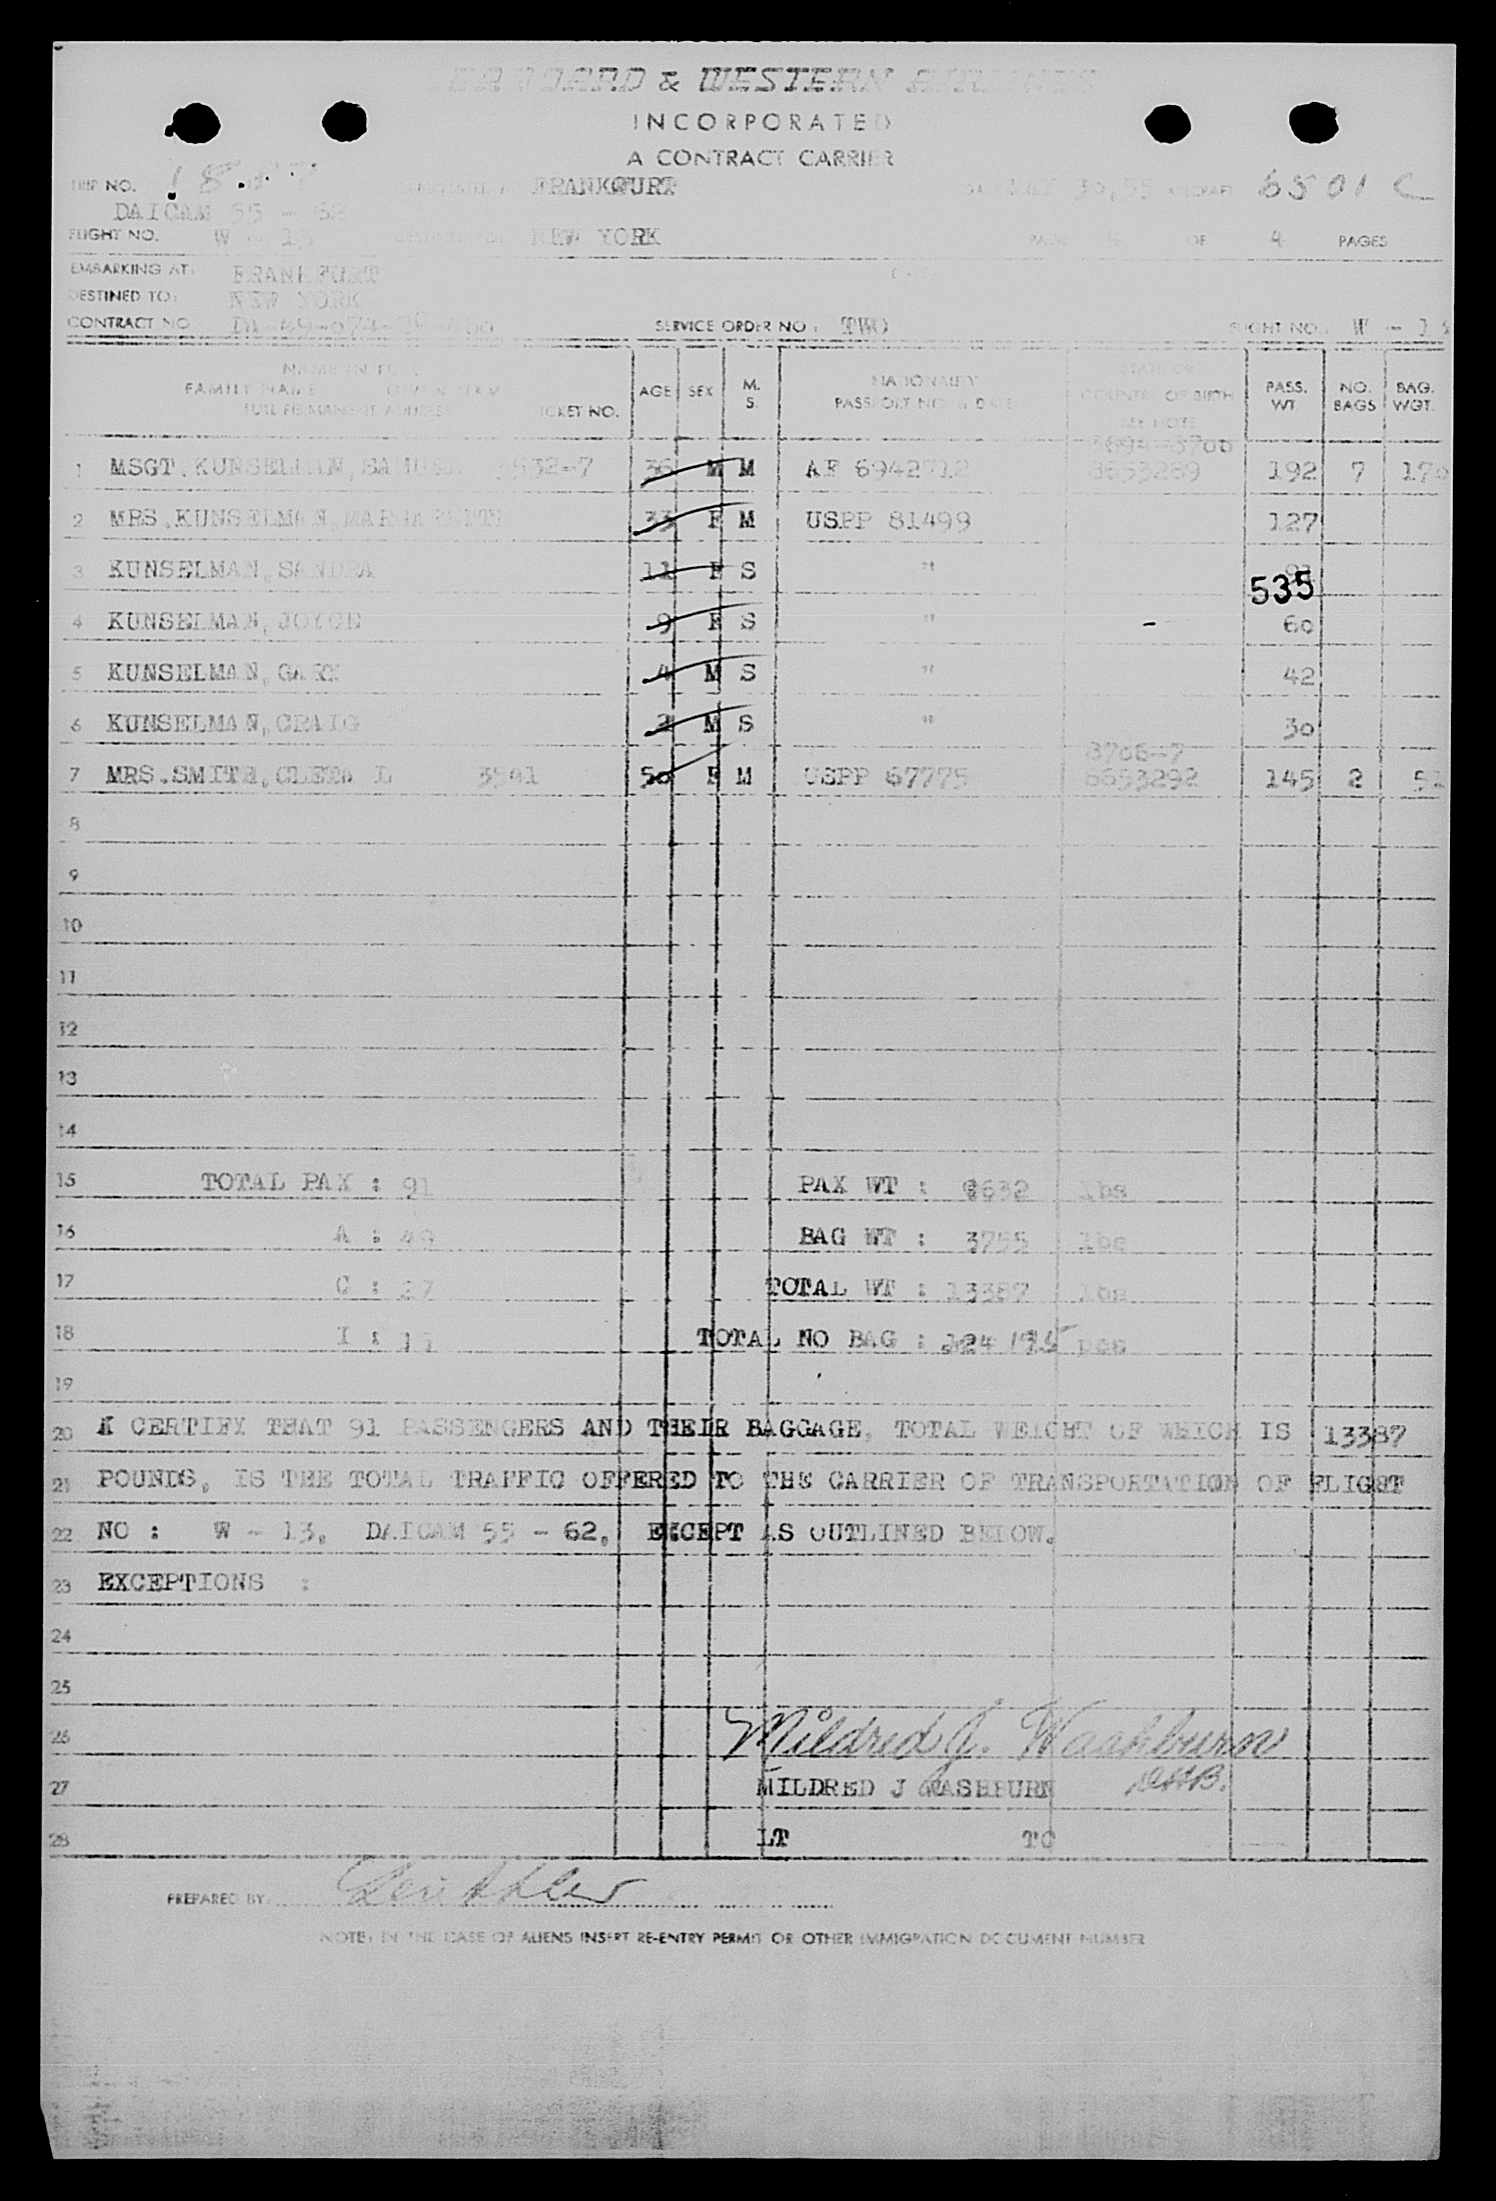 SEABOARD & WESTERN AIRLINES
INCORPORATED
A CONTRACT CARRIER
TRIP NO. FRANKFURT 30,55 AIRCRAFT 6501 C
DAICAM 55 - 62
FLIGHT NO. W - 13 NEW YORK OF 4 PAGES
EMBARKING AT: FRANKFURT
DESTINED TO: NEW YORK
CONTRACT NO. SERVICE ORDER NO: TWO FLIGHT NO: W - 13
NAME IN FULL
FAMILY NAME GIVEN NAME
FULL PERMANENT ADDRESS TICKET NO. AGE SEX M. S. NATIONALITY PASSPORT NO. & DATE COUNTRY OF BIRTH PASS. WT. NO. BAGS BAG. WGT.
3694-3700
1 MSGT.KUNSELMAN,SAMUEL 3532-7 36 M M AF 6942712 8653289 192 7 170
2 MRS.KUNSELMAN,MARGARETTE 33 F M USPP 81499 127
3 KUNSELMAN,SANDRA 11 F S "
535
4 KUNSELMAN,JOYCE 9 F S " - 60
5 KUNSELMAN,GARY 4 M S " 42
6 KUNSELMAN,CRAIG 2 M S " 30
3706-7
7 MRS.SMITH,CLETA L 3541 50 F M USPP 67775 8653292 145 2 51
8
9
10
11
12
13
14
15 TOTAL PAX : 91 PAX WT : 9632 lbs
16 A : 49 BAG WT : 3755 lbs
17 C : 27 TOTAL WT : 13387 lbs
18 I : 15 TOTAL NO BAG : 124 175 pcs
19
20 I CERTIFY THAT 91 PASSENGERS AND THEIR BAGGAGE, TOTAL WEIGHT OF WHICH IS 13387
21 POUNDS, IS THE TOTAL TRAFFIC OFFERED TO THE CARRIER OF TRANSPORTATION OF FLIGHT
22 NO : W - 13, DAICAM 55 - 62, EXCEPT AS OUTLINED BELOW.
23 EXCEPTIONS :
24
25
26 Mildred J. Washburn
27 MILDRED J WASHBURN
28 LT TC
PREPARED BY:
NOTE: IN THE CASE OF ALIENS INSERT RE-ENTRY PERMIT OR OTHER IMMIGRATION DOCUMENT NUMBER